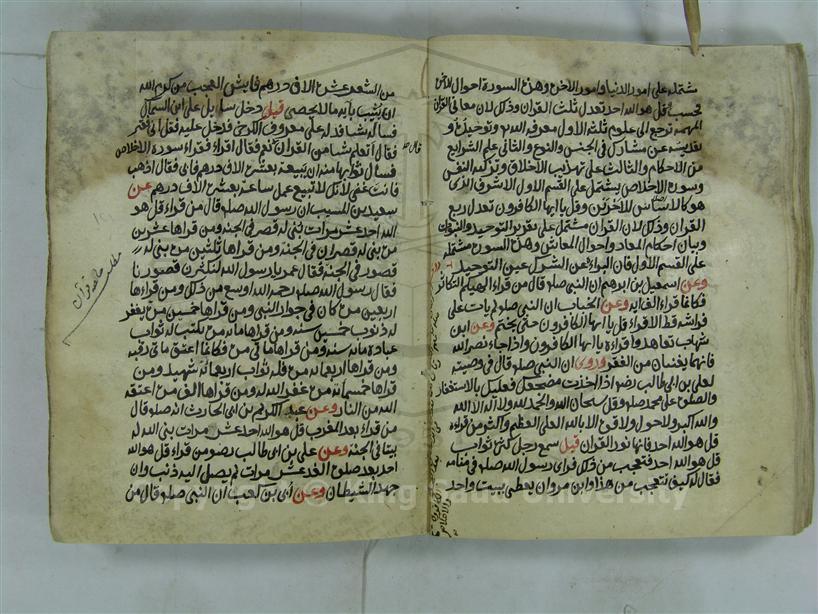 مشتمله على امور الدنيا وامور الاخرة وهذه السورة احوال الاخرة
فحسب قل هو الله احد تعدل ثلث القران وذلك لان معانى القران
المهمه ترجع الى علوم ثلثه الاول معرفه الله تع وتوحيده و
تقديسه عن مشارك فى الجنس والنوع والثانى علم الشرايع
من الاحكام والثالث علم تهذيب الاخلاق وتزكيه النفس
وسورة الاخلاص يشتمل على القسم الاول الاشرف الذى
هو كالاساس للاخرين وقل يا ايها الكافرون تعدل ربع
القران وذلك لان القران مشتمل على تقرير التوحيد والنبوات
وبيان احكام المعاد واحوال المعاش وهذه السورة مشتمله
على القسم الاول فان البراءة عن الشرك عين التوحيد
وعن اسمعيل بن ابرهيم ان النبى صلو قال من قراء الهيكم التكاثر
فكانما قراء الف ايه وعن الخباب ان النبى صلو لم يات على
فراشه قط الا قراء قل يا ايها الكافرون حتى يختم وعن ابن
شهاب تعاهدوا قراءة يا ايها الكافرون واذا جاء نصر الله
فانهما يغنيان من الفقر وروى ان النبى صلو قال فى وصيته
لعلى بن ابى طالب رضو اذا اخذت مضجعك فعليك بالاستغفار
والصلوة على محمد صلو وقل سبحان الله والحمد لله ولا اله الا الله
والله اكبر ولا حول ولا قوة الا بالله العلى العظيم واكثر من قراءة
قل هو الله احد فانها نور القران قيل سمع رجل كثرة ثواب
قل هو الله احد فتعجب من ذلك فراى رسول الله صلو فى منامه
فقال له كيف تتعجب من هذا وابن مروان يعطى ببيت واحد
من الشعر عشرة الاف درهم فايش العجب من كرم الله
ان يثيب بآية ما لا يحصى قيل دخل سايل على ابن السماك
فساله شيا فدله على معروف الكرخى فدخل عليه فقال انى فقير
فقال أتعلم شيا من القران قال نعم فقال اقراء فقراء سورة الاخلاص
فسال ثوابها منه ان يبيعه بعشرة الاف درهم فابى فقال اذهب
فانت غنى لانك لا تبيع عمل ساعة بعشرة الاف درهم عن
سعيد بن المسيب ان رسول الله صلو قال من قراء قل هو
الله احد عشر مرات بنى له قصر فى الجنة ومن قراها عشرين
مرة بنى له قصران فى الجنة ومن قراها ثلثين مرة بنى له
قصور فى الجنة فقال عمر يا رسول الله لنكثرن قصورنا
فقال رسول الله صلو رحمة الله اوسع من ذلك ومن قراءها
اربعين مرة كان فى جوار النبى ومن قراها خمسين مرة يغفر
له ذنوب خمسين سنه ومن قراها مايه مرة يكتب له ثواب
عبادة مايه سنه ومن قراها مايتى مرة فكانما اعتق مايتى رقبه
ومن قراها اربعمايه مرة فله ثواب اربعمايه شهيد ومن
قراها خمسمايه مرة غفر الله له ومن قراها الف مرة اعتقه
الله من النار وعن عبد الكريم بن ابى الحارث انه صلو قال
من قراء بعد المغرب قل هو الله احد عشر مرات بنى الله له
بيتا فى الجنة وعن على بن ابى طالب رضو من قراء قل هو الله
احد بعد صلوة الغد عشر مرات لم يصل اليه ذنب وان
جهد الشيطان وعن أبى بن كعب أن النبى صلو قال من